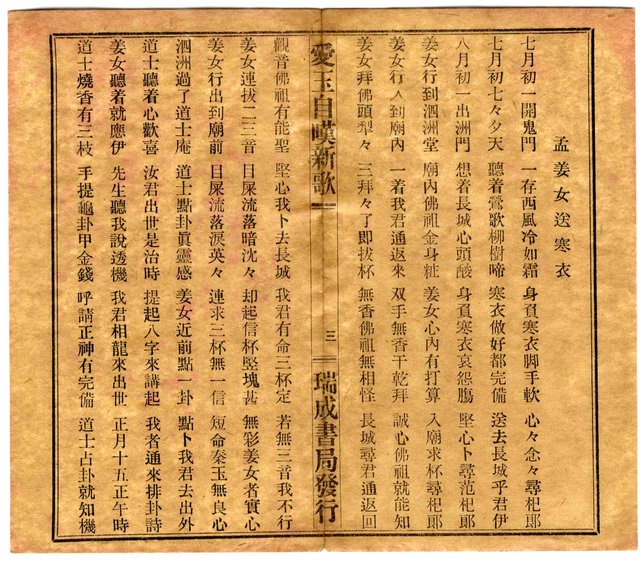 孟姜女送寒衣
七月初一開鬼門 一存西風冷如霜 身負寒衣脚手軟 心々念々尋杞郞
七月初七々夕天 聽着鶯歌柳樹啼 寒衣做好都完備 送去長城乎君伊
八月初一出洲門 想着長城心頭酸 身負寒衣哀怨膓 堅心卜尋范杞郞
姜女行到泗洲堂 廟內佛祖金身粧 姜女心內有打算 入廟求杯尋杞郞
姜女行入到廟內 一着我君通返來 双手無香干乾拜 誠心佛祖就能知
姜女拜佛頭犁々 三拜々了即拔杯 無香佛祖無相怪 長城尋君通返回
愛玉自嘆新歌 三 瑞成書局發行
觀音佛祖有能聖 堅心我卜去長城 我君有命三杯定 若無三音我不行
姜女連拔二三音 目屎流落暗沈々 却起信杯竪塊甚 無彩姜女者實心
姜女行出到廟前 目屎流落淚英々 連求三杯無一信 短命秦玉無良心
泗洲過了道士庵 道士點卦眞靈感 姜女近前點一卦 點卜我君去出外
道士聽着心歡喜 汝君出世是治時 提起八字來講起 我者通來排卦詩
姜女聽着就應伊 先生聽我說透機 我君相龍來出世 正月十五正午時
道士燒香有三枝 手提龜卦甲金錢 呼請正神有完備 道士占卦就知機